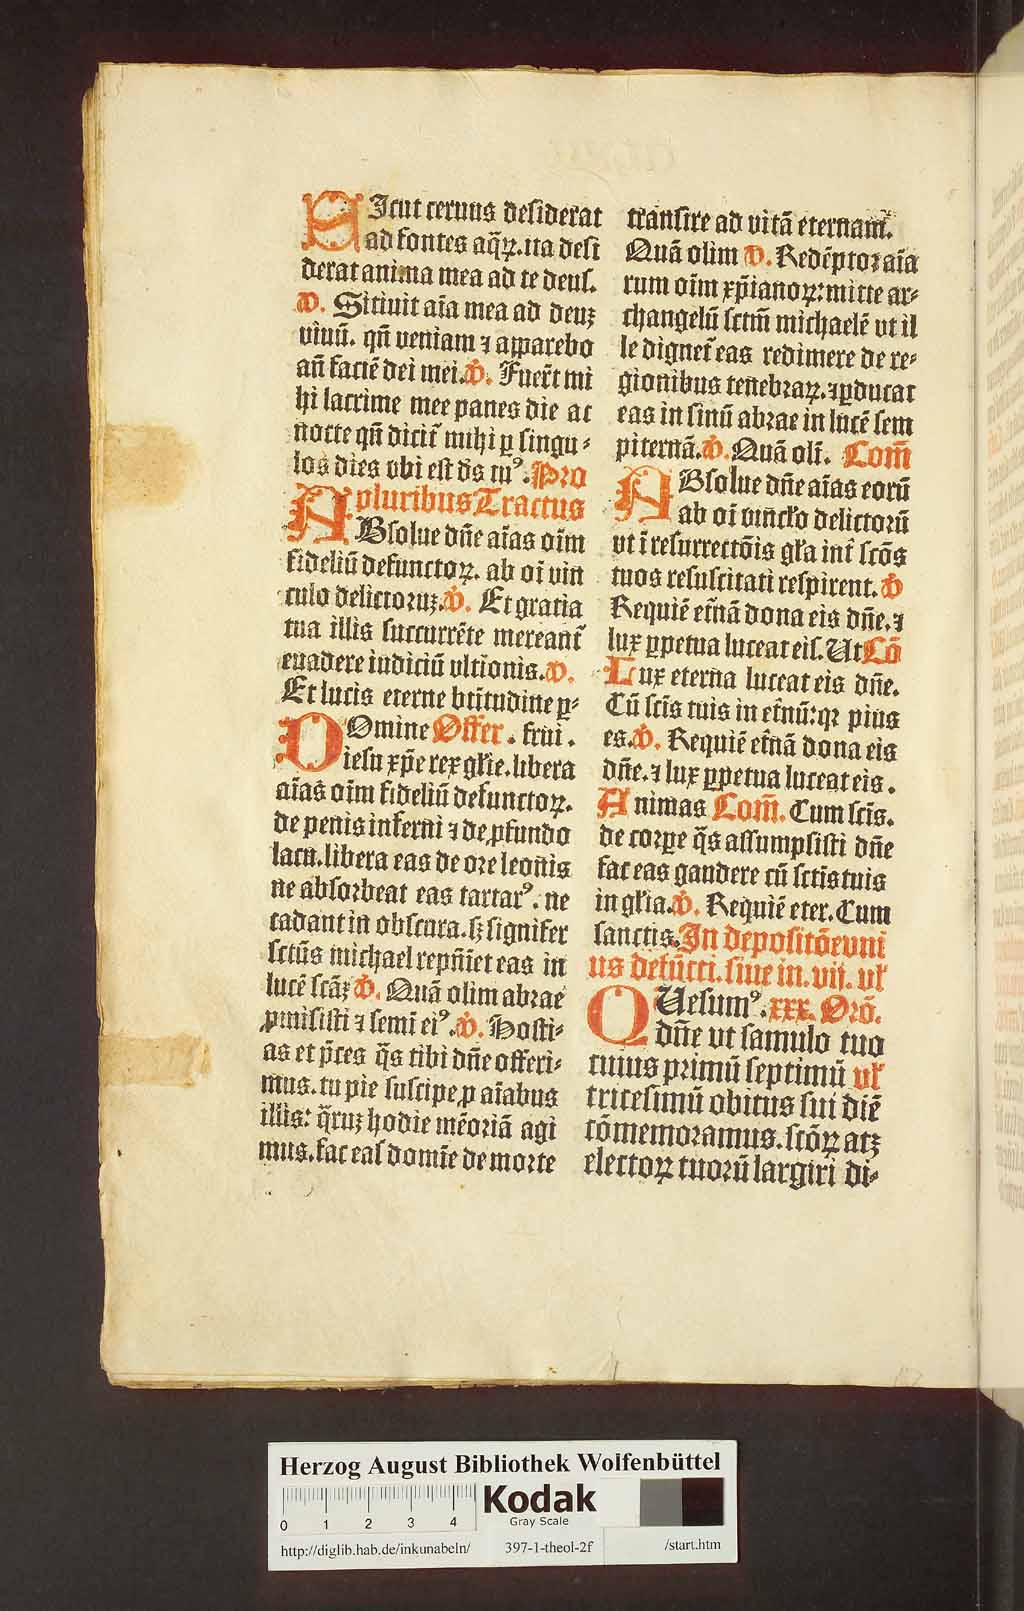 SIcut ceruus desiderat
ad fontes aq̄ꝝ.ita desi
derat anima mea ad te deus.
V. Sitiuit aīa mea ad deuꝫ
viuū. qn̄ veniam ⁊ apparebo
an̄ faciē dei mei. V. Fuer̄t mi
hi lacrime mee panes die ac
nocte qn̄ dicit̄ mihi ꝑ singu⸗
los dies vbi est ds̄ tuꝰ. Pro
pluribus Tractus
ABsolue dn̄e aīas oīm
fideliū defunctoꝝ. ab oī vin
culo delictoruꝫ. V. Et gratia
tua illis succurrēte mereant̄
euadere iudiciū vltionis. V.
Et lucis eterne btītudine ꝑ⸗
DOmine Offer. frui.
iesu xp̄e rex gl̄ie. libera
aīas oīm fideliū defunctoꝝ.
de penis inferni ⁊ de ꝓfundo
lacu. libera eas de ore leonis
ne absorbeat eas tartarꝰ. ne
cadant in obscura. sꝫ signifer
sctūs michael repn̄iet eas in
lucē scāꝫ V. Quā olim abrae
ꝓmisisti ⁊ semī eiꝰ. V. Hosti⸗
as et p̄ces q̄s tibi dn̄e offeri⸗
mus. tu pie suscipe ꝓ aīabus
illis: q̄ruꝫ hodie mēoriā agi
mus. fac eas domīe de morte
transire ad vitā eternam̄.
Quā olim V. Redēptor aīa
rum oīm xp̄ianoꝝ: mitte ar⸗
changelū sctm̄ michaelē vt il
le dignet̄ eas redimere de re⸗
gionibus tenebraꝝ. ⁊ ꝑducat
eas in sinū abrae in lucē sem
piternā. V. Quā oli. Com̄
ABsolue dn̄e aīas eorū
ab oī vinc̄ło delictorū
vt ī resurrectōis gr̄a int̄ scōs
tuos resuscitati respirent. V
Requiē et̄nā dona eis dn̄e. ⁊
lux ꝑpetua luceat eis. Ut Cō
Lux eterna luceat eis dn̄e.
Cū scīs tuis in et̄nū: qꝛ pius
es. V. Requiē et̄nā dona eis
dn̄e. ⁊ lux ꝑpetua luceat eis.
Animas Com̄. Cum scīs.
de corꝑe q̄s assumpsisti dn̄e
fac eas gaudere cū sctīs tuis
in gl̄ia. V. Requiē eter. Cum
sanctis. In depositōe vni
us defūcti. siue in. vij. vł
QUesumꝰ. xxx. Orō.
dn̄e vt famulo tuo
cuius primū septimū vł
tricesimū obitus sui diē
cōmemoramus. scōꝝ atꝫ
electoꝝ tuorū largiri di⸗
Herzog August Bibliothek Wolfenbüttel
0 1 2 3 4
Kodak
Gray Scale
http://diglib.hab.de/inkunabeln/ 397-1-theol-2f /start.htm